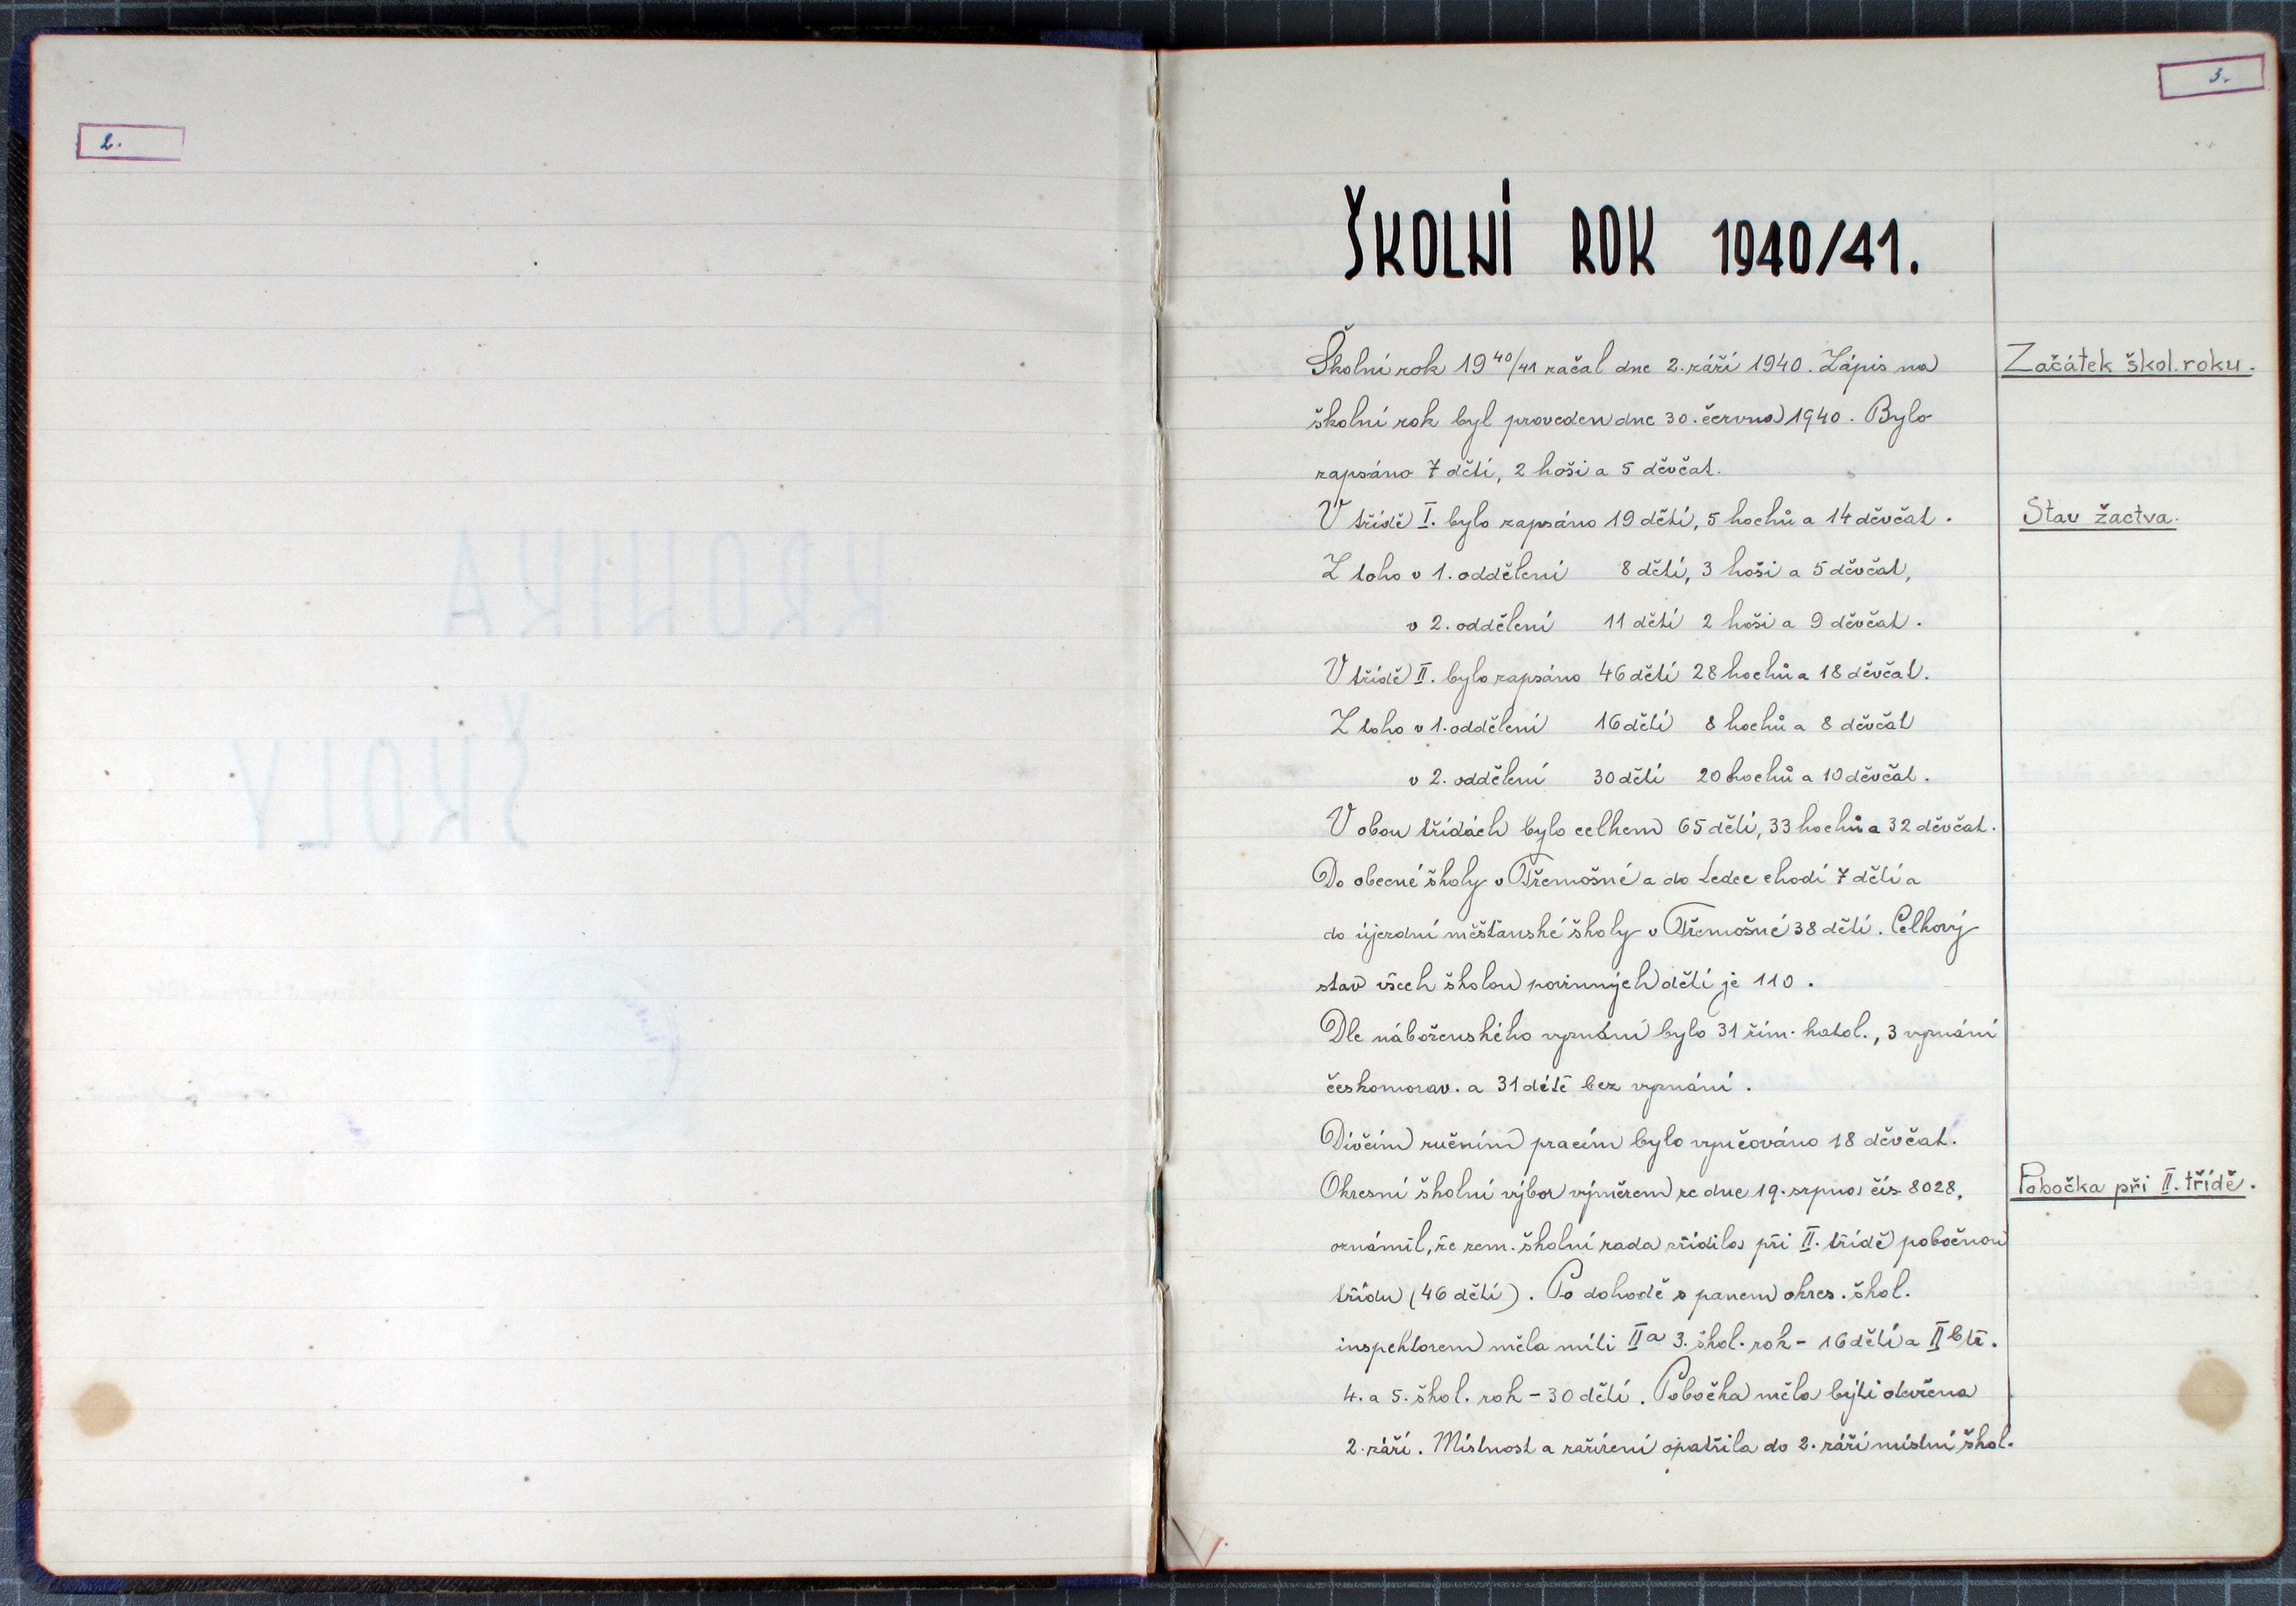 2.
3.
ŠKOLNÍ ROK 1940/41.
Školní rok 19 40/41 začal dne 2. září 1940. Zápis na
Začátek škol. roku.
školní rok byl proveden dne 30. června 1940. Bylo
zapsáno 7 dětí, 2 hoši a 5 děvčat.
V třídě I. bylo zapsáno 19 dětí, 5 hochů a 14 děvčat.
Stav žactva.
Z toho v 1. oddělení 8 dětí, 3 hoši a 5 děvčat,
v 2. oddělení 11 dětí 2 hoši a 9 děvčat.
V třídě II. bylo zapsáno 46 dětí 28 hochů a 18 děvčat.
Z toho v 1. oddělení 16 dětí 8 hochů a 8 děvčat
v 2. oddělení 30 dětí 20 hochů a 10 děvčat.
V obou třídách bylo celkem 65 dětí, 33 hochů a 32 děvčat.
Do obecné školy v Třemošné a do Ledec chodí 7 dětí a
do újezdní měšťanské školy v Třemošné 38 dětí. Celkový
stav všech školou povinných dětí je 110.
Dle náboženského vyznání bylo 31 řím. katol., 3 vyznání
českomorav. a 31 dítě bez vyznání.
Dívčím ručním pracím bylo vyučováno 18 děvčat.
Okresní školní výbor výměrem ze dne 19. srpna čís. 8028,
Pobočka při II. třídě.
oznámil, že zem. školní rada zřídila při II. třídě pobočnou
třídu (46 dětí). Po dohodě s panem okres. škol.
inspektorem měla míti II a 3. škol. rok - 16 dětí a II b tř.
4. a 5. škol. rok - 30 dětí. Pobočka měla býti otevřena
2. září. Místnost a zařízení opatřila do 2. září místní škol.